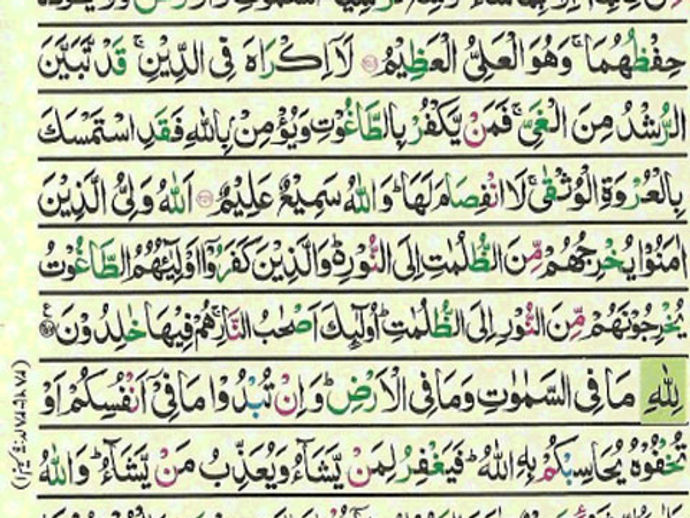 حِفْظُهُمَا ۚ وَهُوَ الْعَلِىُّ الْعَظِيْمُ ۝ لَاۤ اِكْرَاهَ فِى الدِّيْنِ ۚ قَدْ تَّبَيَّنَ
الرُّشْدُ مِنَ الْغَىِّ ۚ فَمَنْ يَّكْفُرْ بِالطَّاغُوْتِ وَيُؤْمِنْۢ بِاللّٰهِ فَقَدِ اسْتَمْسَكَ
بِالْعُرْوَةِ الْوُثْقٰى ۚ لَا انْفِصَامَ لَهَا ؕ وَاللّٰهُ سَمِيْعٌ عَلِيْمٌ ۝ اَللّٰهُ وَلِىُّ الَّذِيْنَ
اٰمَنُوْا يُخْرِجُهُمْ مِّنَ الظُّلُمٰتِ اِلَى النُّوْرِ ؕ وَالَّذِيْنَ كَفَرُوْۤا اَوْلِيٰٓـُٔهُمُ الطَّاغُوْتُ
يُخْرِجُوْنَهُمْ مِّنَ النُّوْرِ اِلَى الظُّلُمٰتِ ؕ اُولٰٓئِكَ اَصْحٰبُ النَّارِ ۚ هُمْ فِيْهَا خٰلِدُوْنَ ۝
لِلّٰهِ مَا فِى السَّمٰوٰتِ وَمَا فِى الْاَرْضِ ؕ وَاِنْ تُبْدُوْا مَا فِىْۤ اَنْفُسِكُمْ اَوْ
تُخْفُوْهُ يُحَاسِبْكُمْ بِهِ اللّٰهُ ؕ فَيَغْفِرُ لِمَنْ يَّشَآءُ وَيُعَذِّبُ مَنْ يَّشَآءُ ؕ وَاللّٰهُ